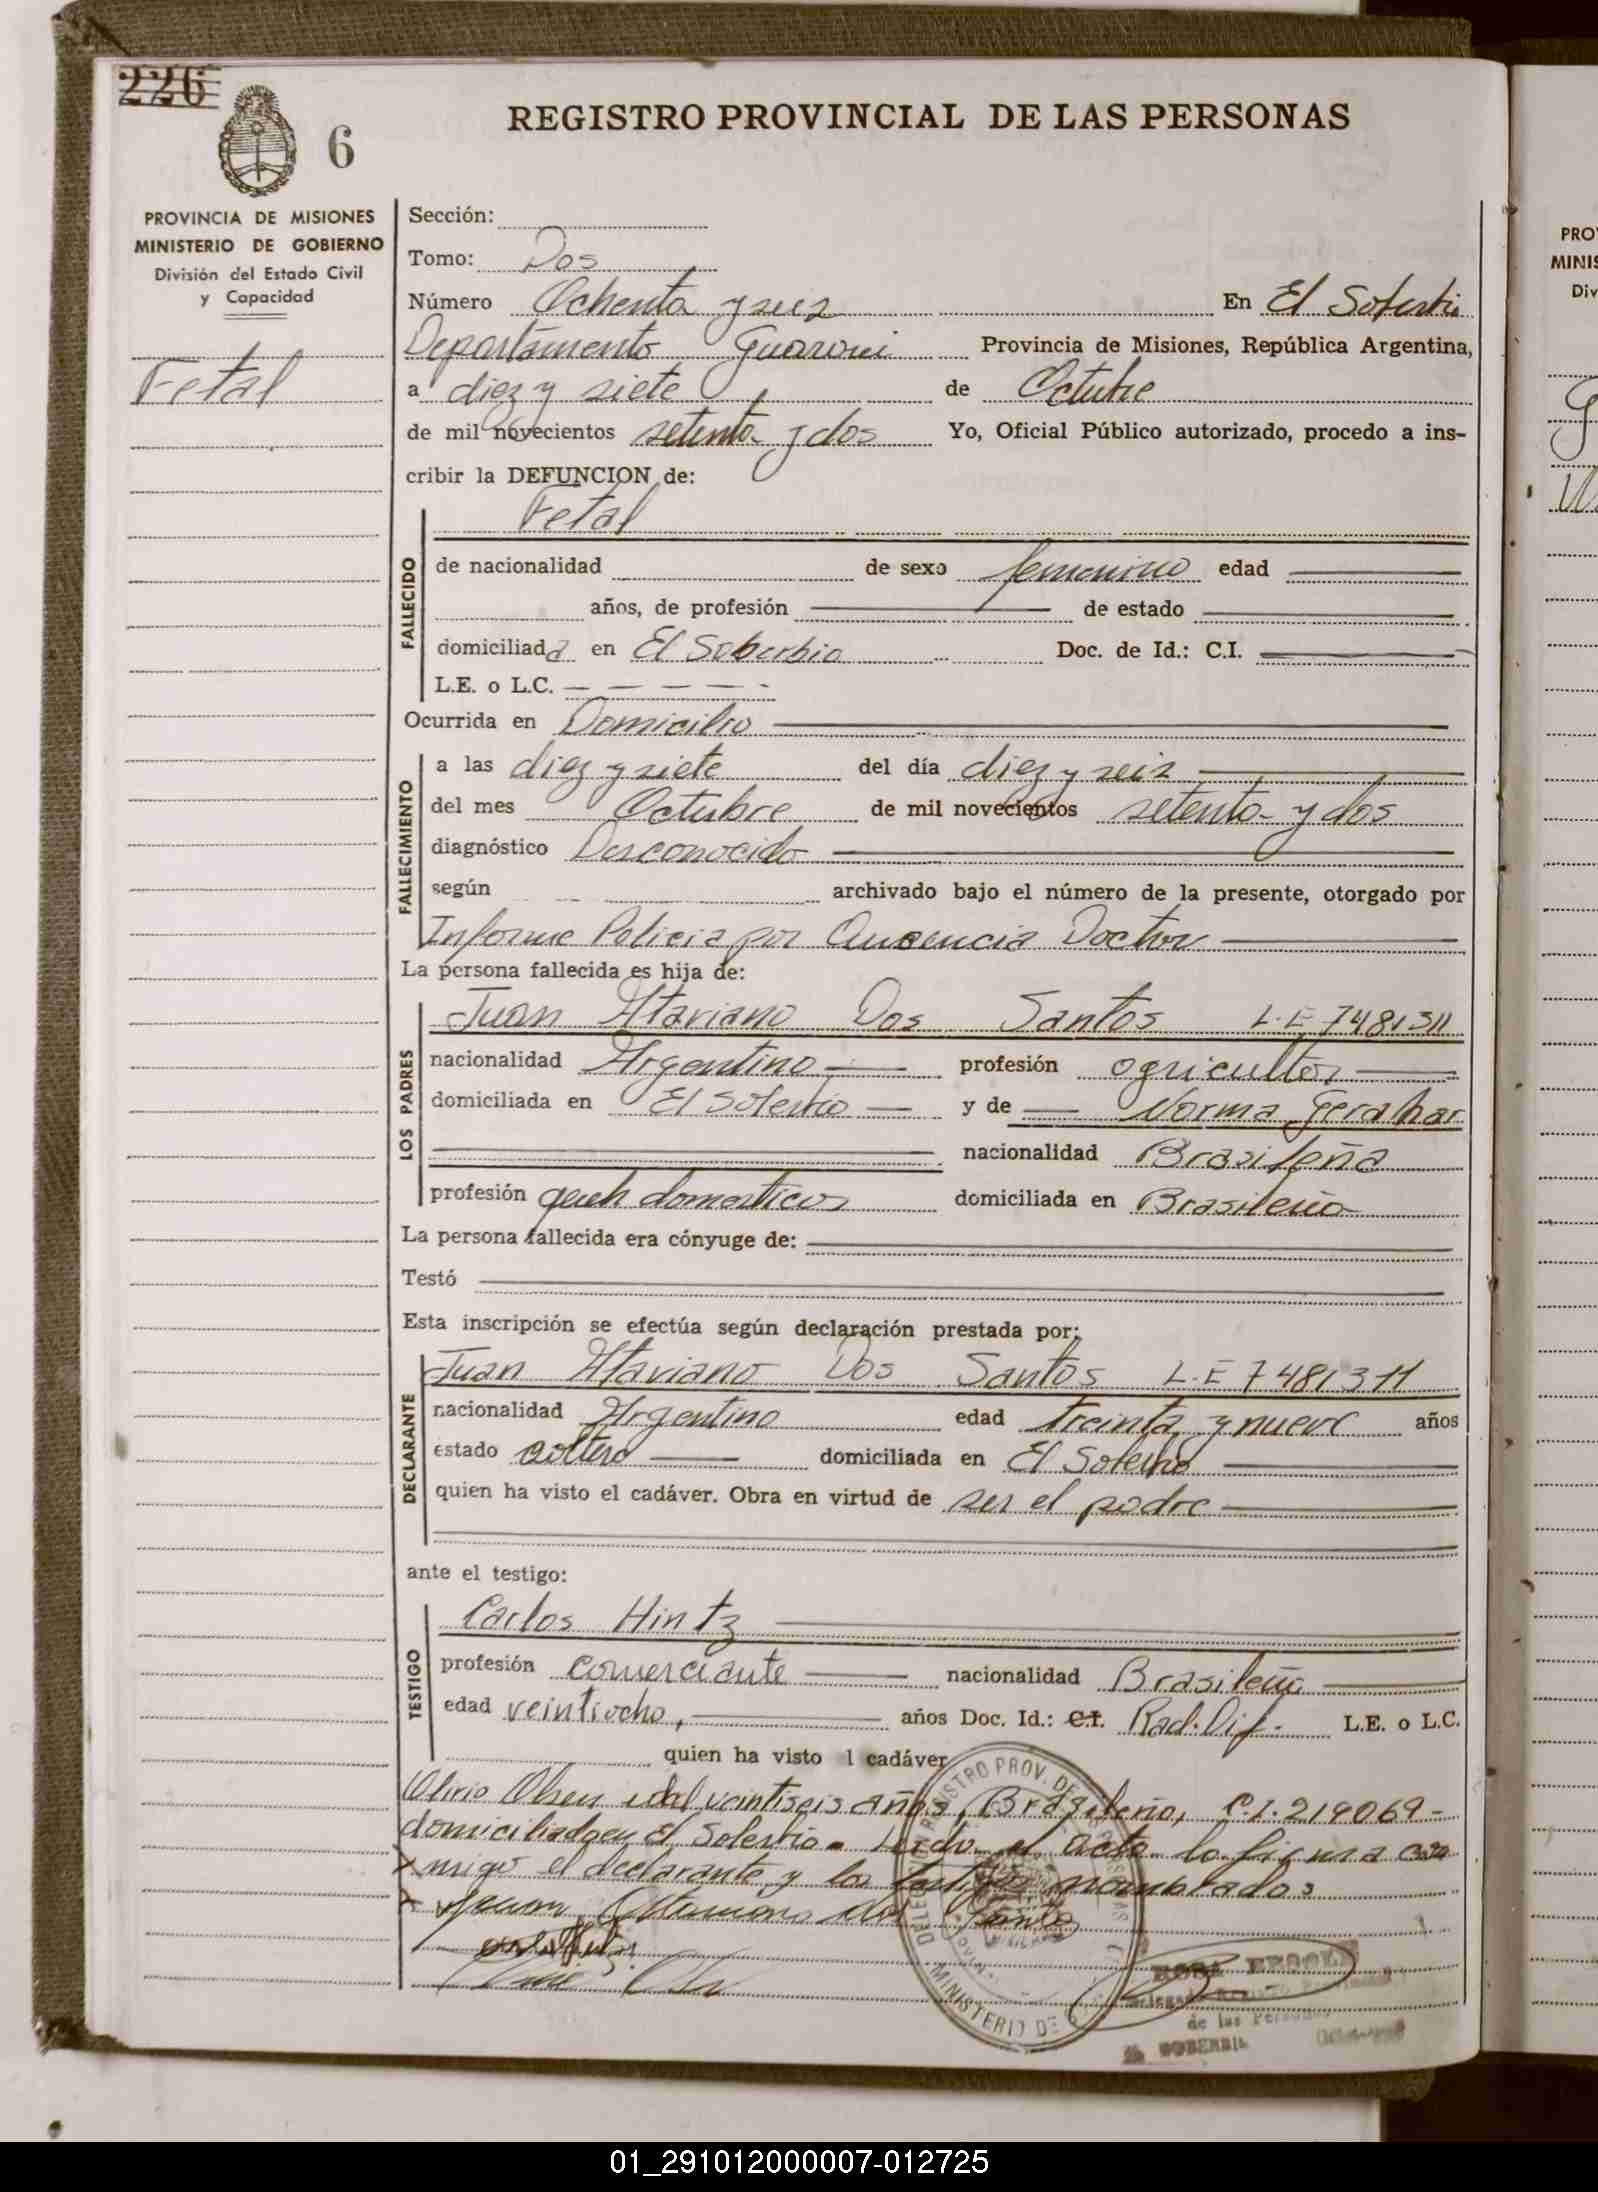 226
6
REGISTRO PROVINCIAL DE LAS PERSONAS
PROVINCIA DE MISIONES
MINISTERIO DE GOBIERNO
División del Estado Civil
y Capacidad
Fetal
Sección:
Tomo: Dos
Número Ochenta y seis En El Soberbio
Departamento Guarani Provincia de Misiones, República Argentina,
a diez y siete de Octubre
de mil novecientos setenta y dos Yo, Oficial Público autorizado, procedo a ins-
cribir la DEFUNCION de:
Fetal
FALLECIDO
de nacionalidad de sexo femenino edad
años, de profesión de estado
domiciliada en El Soberbio Doc. de Id.: C.I.
L.E. o L.C.
Ocurrida en Domicilio
FALLECIMIENTO
a las diez y siete del día diez y seis
del mes Octubre de mil novecientos setenta y dos
diagnóstico Desconocido
según archivado bajo el número de la presente, otorgado por
Informe Policia por Ausencia Doctor
La persona fallecida es hija de:
LOS PADRES
Juan Ataviano Dos Santos L.E 7481311
nacionalidad Argentino profesión agricultor
domiciliada en El Soberbio y de Norma
nacionalidad Brasileña
profesión domesticos domiciliada en Brasileña
La persona fallecida era cónyuge de:
Testó
Esta inscripción se efectúa según declaración prestada por:
DECLARANTE
Juan Ataviano Dos Santos L.E 7481311
nacionalidad Argentino edad treinta y nueve años
estado soltero domiciliada en El Soberbio
quien ha visto el cadáver. Obra en virtud de ser el padre
ante el testigo:
TESTIGO
Carlos Hintz
profesión comerciante nacionalidad Brasileña
edad veintiocho, años Doc. Id.: C.I. Rad. Dif. L.E. o L.C.
quien ha visto l cadáver
Olirio Olsen edad veintiseis años, Brasileño, C.I. 219069-
domiciliado en El Soberbio. Leido el acta lo firma con
migo el declarante y los testigos nombrados
Juan Ataviano dos Santos
MINISTERIO DE
de las Personas
EL SOBERBIO
PRO
MINIS
Div
01_291012000007-012725